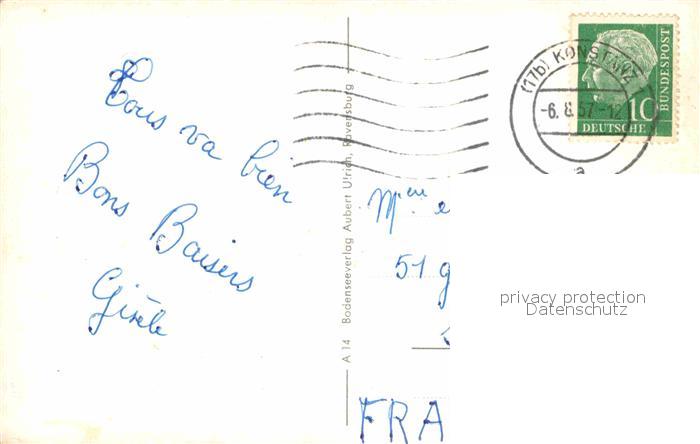 Tous va bien
Bons Baisers
Gisèle
A 14 Bodenseeverlag Aubert Ulrich, Ravensburg
(17b) KONSTANZ
-6. 8. 57 -12
a
10
DEUTSCHE
BUNDESPOST
51 g
FRA
privacy protection
Datenschutz